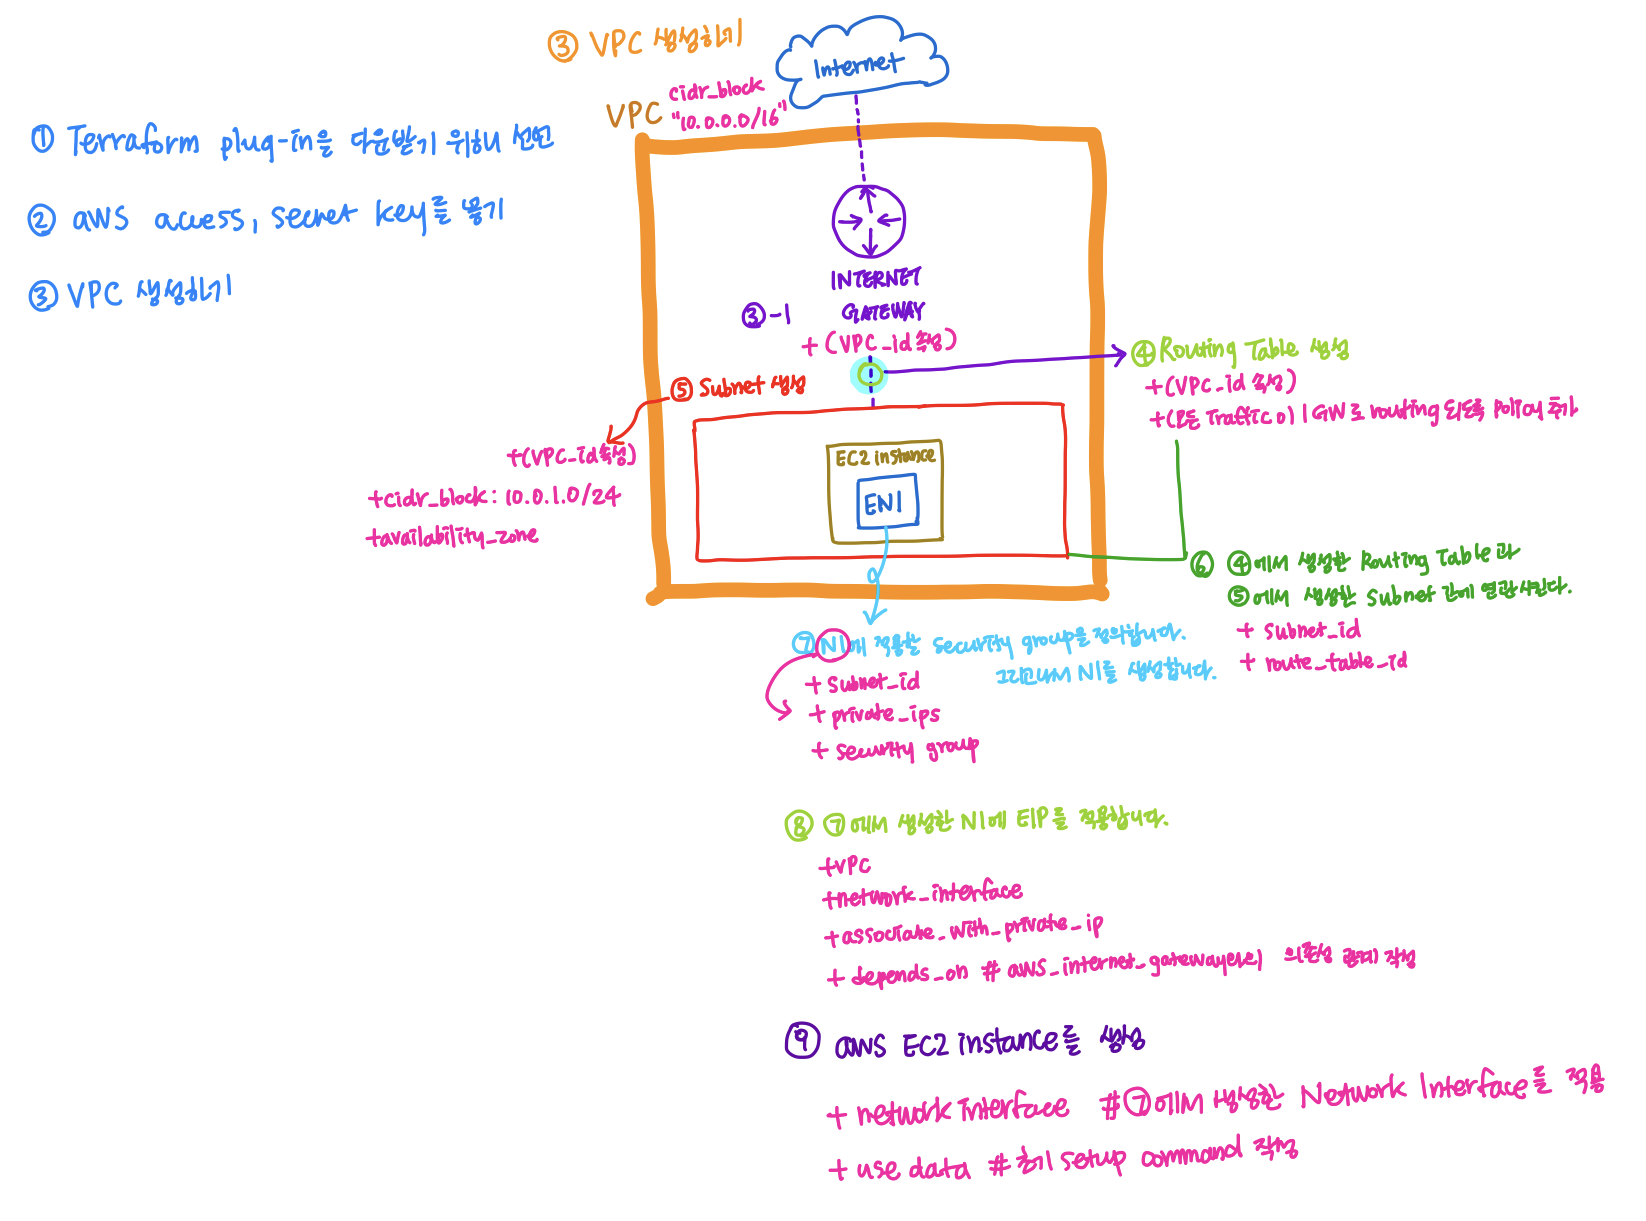 ③ VPC 생성하기
Internet
VPC
cidr_block
"10.0.0.0/16"
① Terraform plug-in을 다운받기 위해 선언
② aws access, secret key를 넣기
③ VPC 생성하기
INTERNET
GATEWAY
③-1
+ (VPC_id 속성)
④ Routing Table 생성
+(VPC_id 속성)
+(모든 Traffic이 IGW로 routing 되도록 Policy 추가
⑤ Subnet 생성
+(VPC_id속성)
+cidr_block: 10.0.1.0/24
+availability_zone
EC2 instance
ENI
⑥ ④에서 생성한 Routing Table과
⑤에서 생성한 Subnet 간에 연관시킨다.
+ Subnet_id
+ route_table_id
⑦ NI에 적용할 Security group을 정의합니다.
그리고나서 NI를 생성합니다.
+ Subnet_id
+ private_ips
+ security group
⑧ ⑦에서 생성한 NI에 EIP를 적용합니다.
+VPC
+network_interface
+associate_with_private_ip
+ depends_on # aws_internet_gateway에 의존성 관계 작성
⑨ aws EC2 instance를 생성
+ network interface #⑦에서 생성한 Network Interface를 적용
+ use data # 초기 setup command 작성